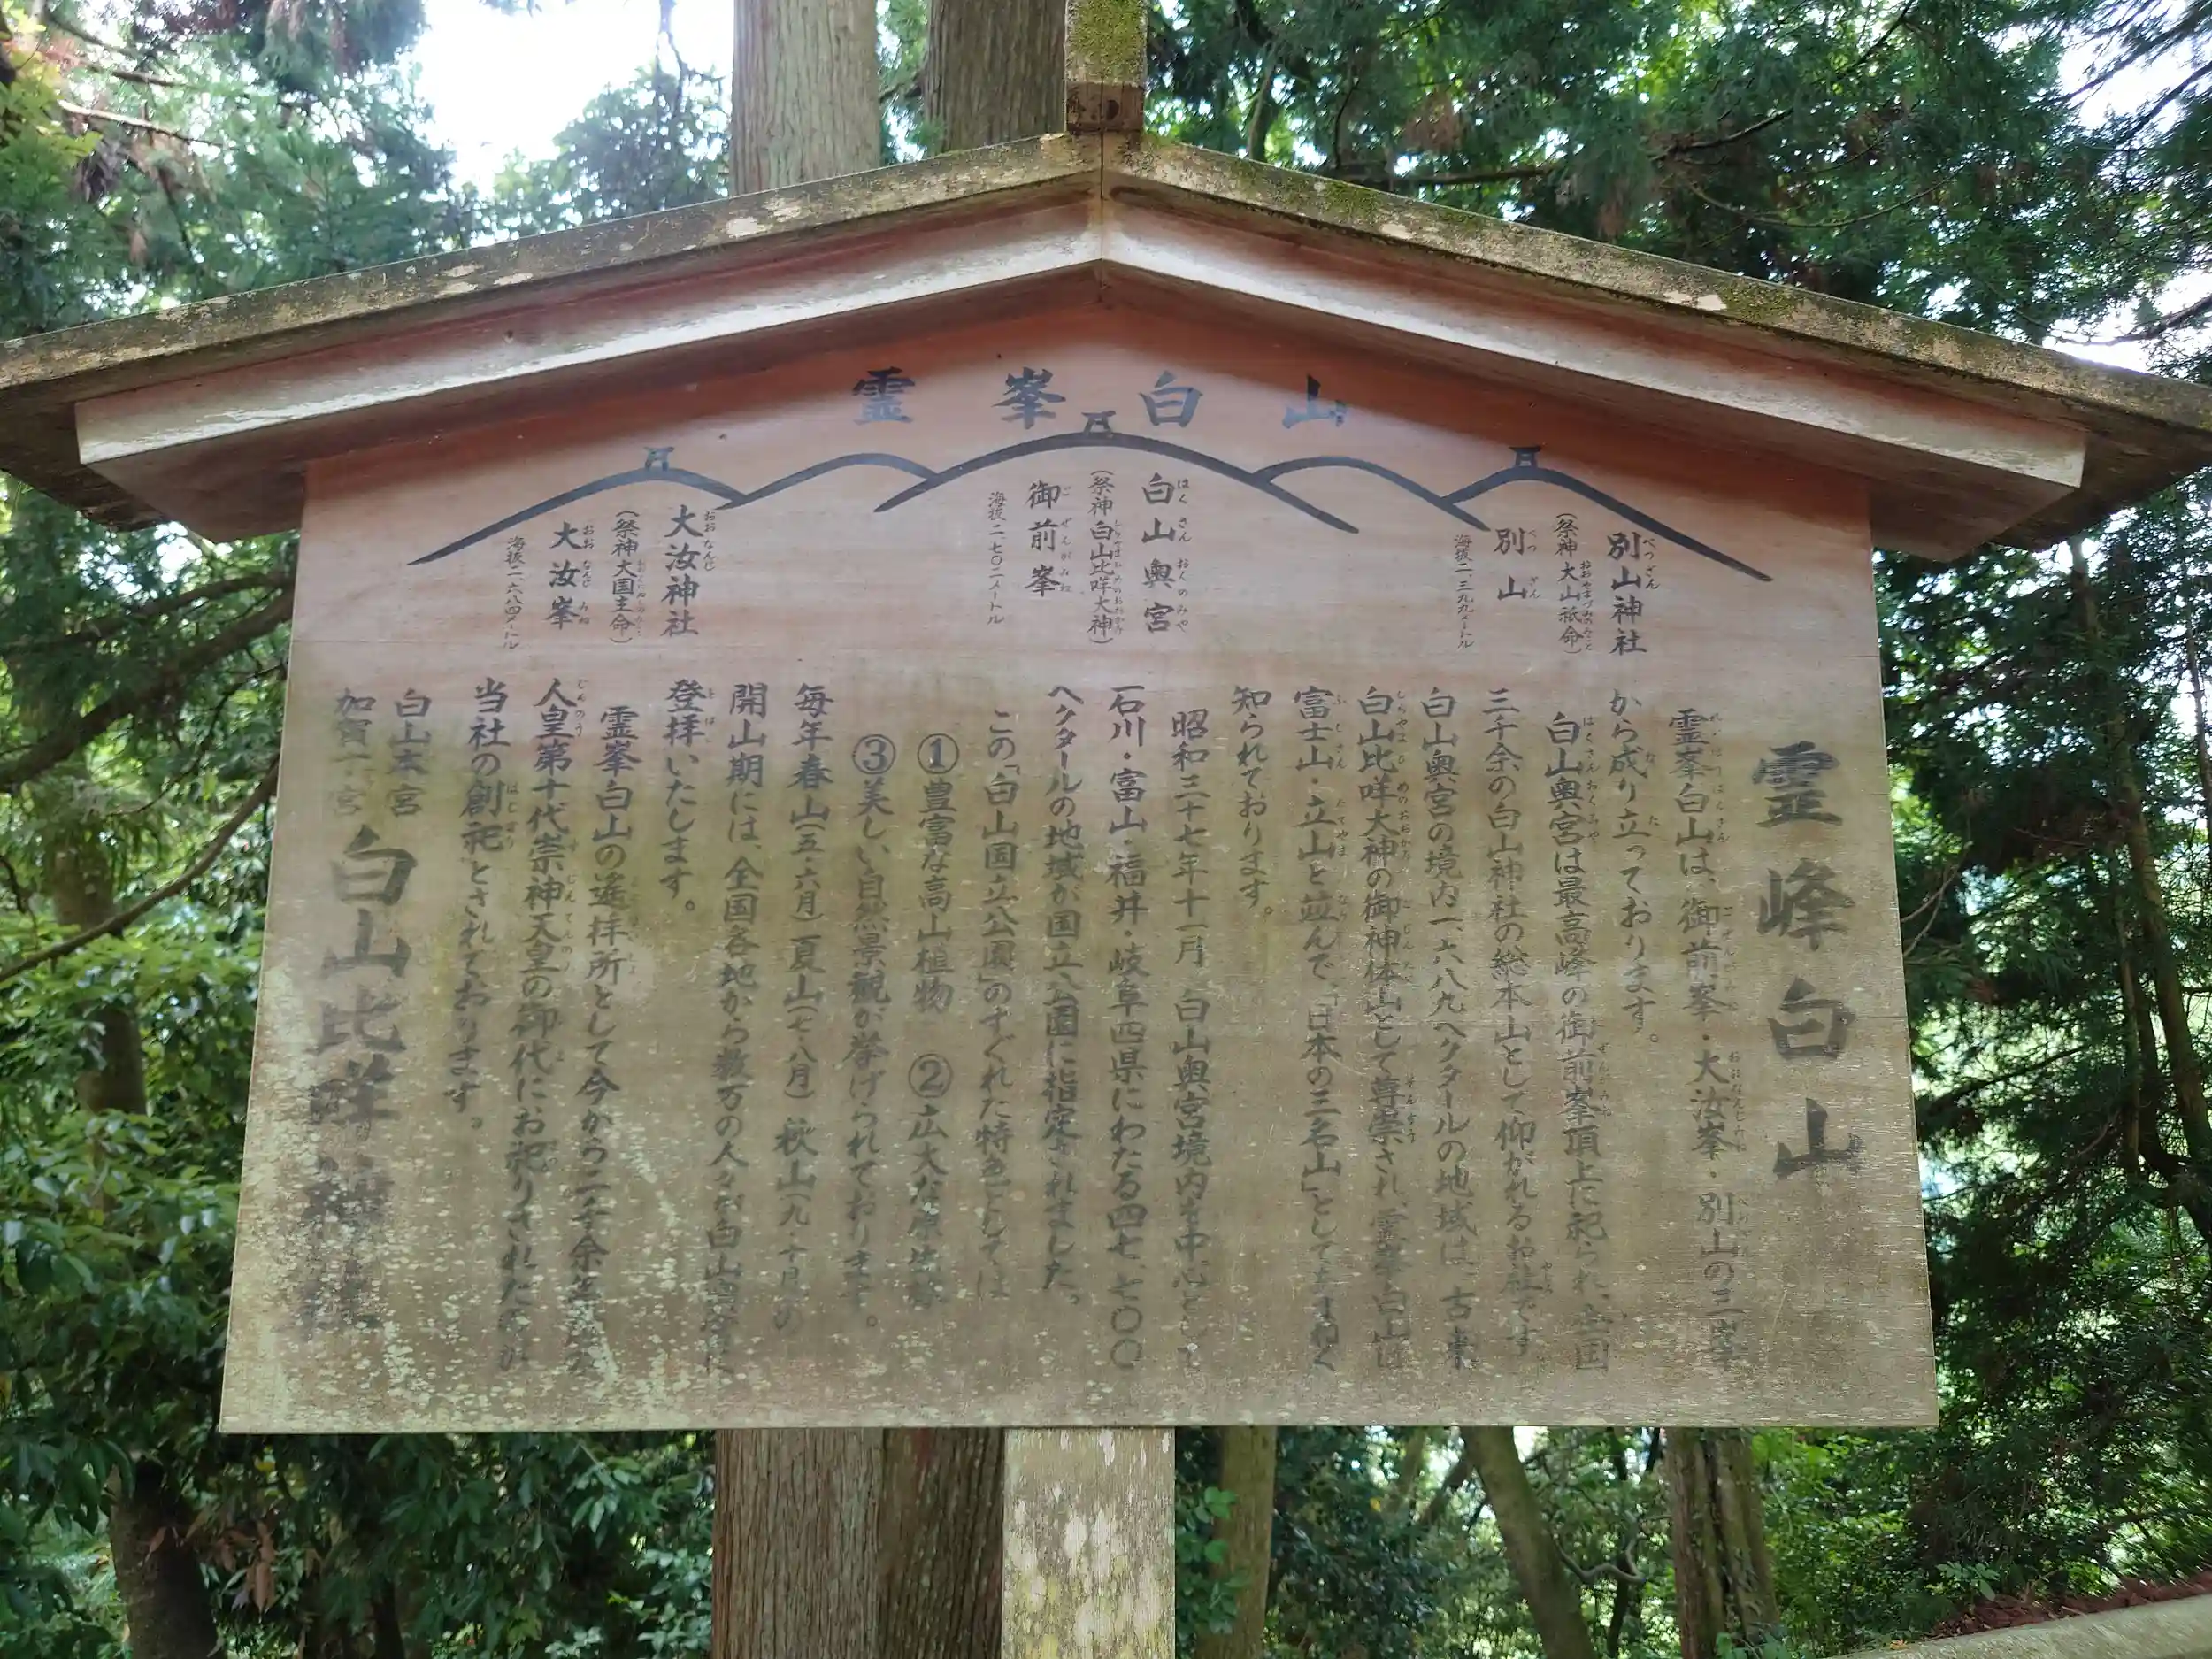 霊峯白山
別山神社
(祭神 大山祇命)
別山
海抜二、三九九メートル
白山奥宮
(祭神 白山比咩大神)
御前峯
海抜二、七〇二メートル
大汝神社
(祭神 大国主命)
大汝峯
海抜二、六八四メートル
霊峰白山
霊峯白山は、御前峯・大汝峯・別山の三峯
から成り立っております。
白山奥宮は最高峰の御前峯頂上に祀られ、全国
三千余の白山神社の総本山として仰がれるお社です
白山奥宮の境内一、六八九ヘクタールの地域は、古来
白山比咩大神の御神体山として尊崇され、霊峯白山は
富士山・立山と並んで、「日本の三名山」としてもまねく
知られております。
昭和三十七年十一月 白山奥宮境内を中心として
石川・富山・福井・岐阜四県にわたる四七、七〇〇
ヘクタールの地域が国立公園に指定されました。
この「白山国立公園」のすぐれた特色としては
①豊富な高山植物 ②広大な原生林
③美しい自然景観が挙げられております。
毎年春山(五・六月)夏山(七・八月)秋山(九・十月)の
開山期には、全国各地から数万の人々が白山奥宮に
登拝いたします。
霊峯白山の遙拝所として今から二千余年
人皇第十代崇神天皇の御代にお祀りされたのが
当社の創祀とされております。
白山本宮
加賀一ノ宮
白山比咩神社